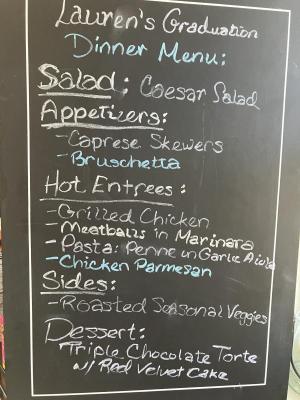 Lauren's Graduation
Dinner Menu:
Salad: Caesar Salad
Appetizers:
-Caprese Skewers
-Bruschetta
Hot Entrees:
-Grilled Chicken
-Meatballs in Marinara
-Pasta: Penne in Garlic Aiola
-Chicken Parmesan
Sides:
-Roasted Seasonal Veggies
Dessert:
Triple Chocolate Torte
w/ Red Velvet Cake